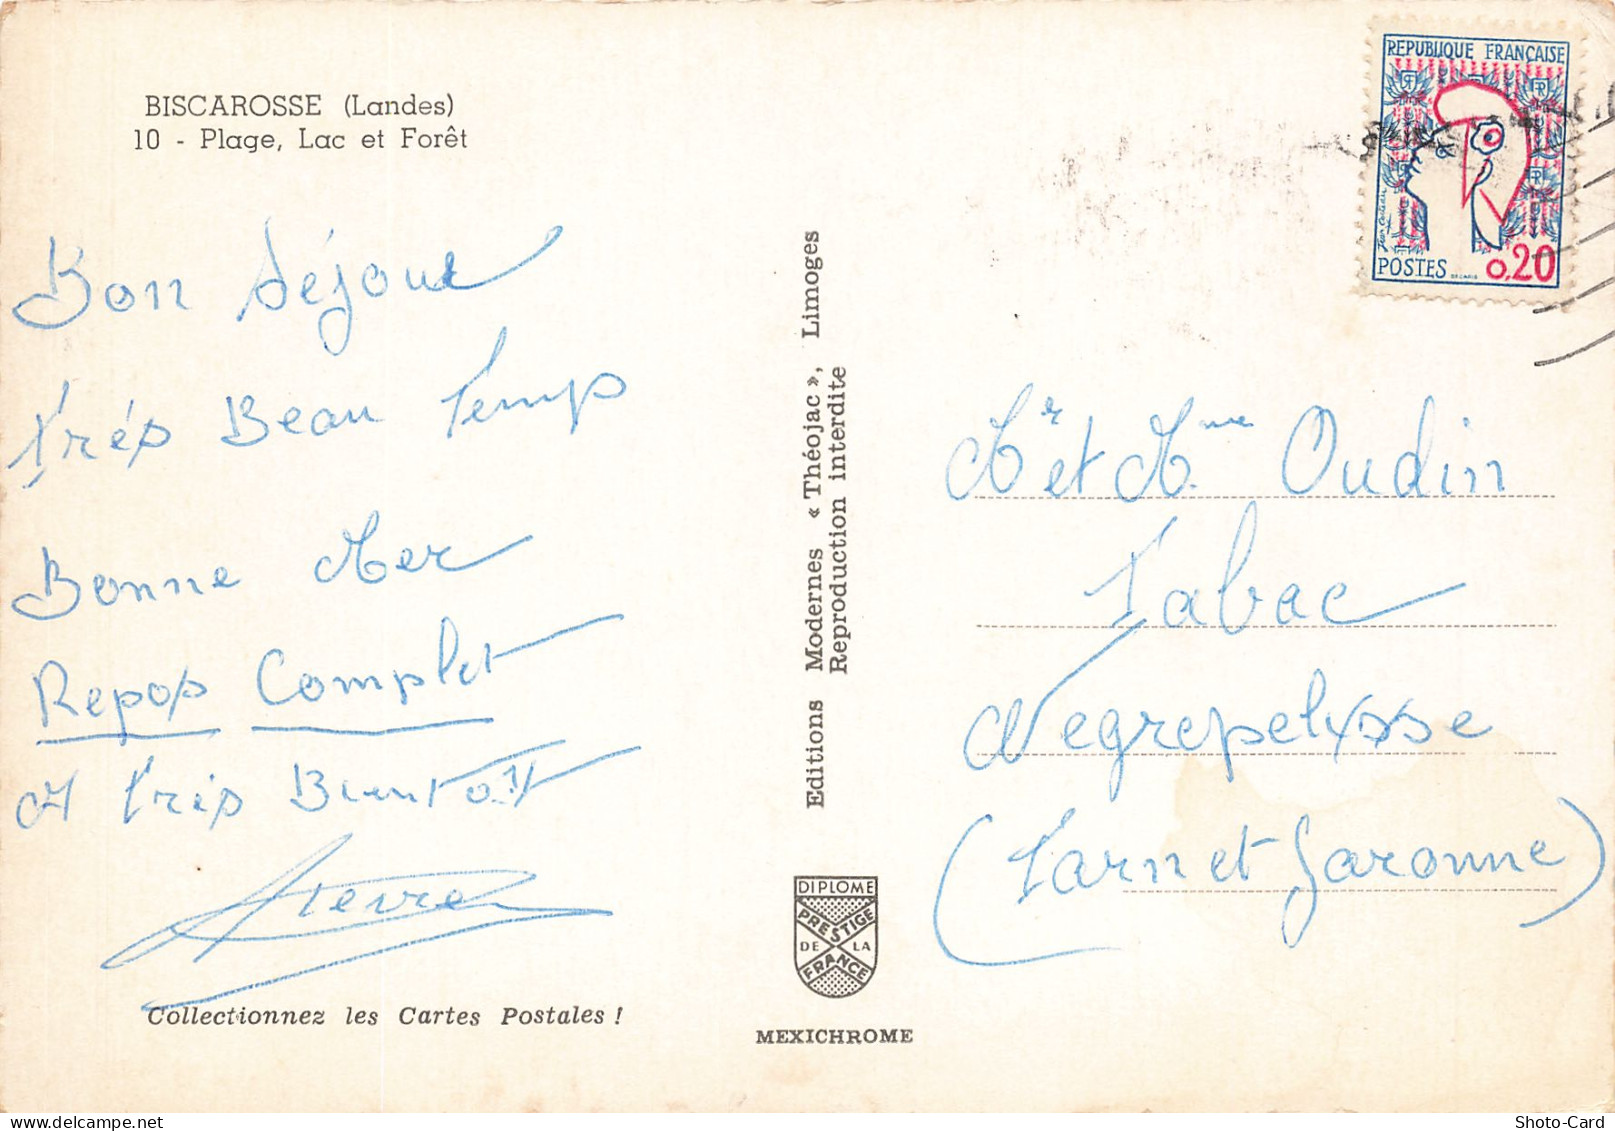 BISCAROSSE (Landes)
10 - Plage, Lac et Forêt
Bon séjour
Très Beau Temps
Bonne Mer
Repos Complet
A Très Bientôt
Pierre
Collectionnez les Cartes Postales !
Editions Modernes « Théojac », Limoges
Reproduction interdite
DIPLOME
PRESTIGE
DE LA
FRANCE
MEXICHROME
REPUBLIQUE FRANÇAISE
RF
POSTES
0,20
Mr et Mme Oudin
Tabac
Negrepelisse
(Tarn et Garonne)
Shoto-Card